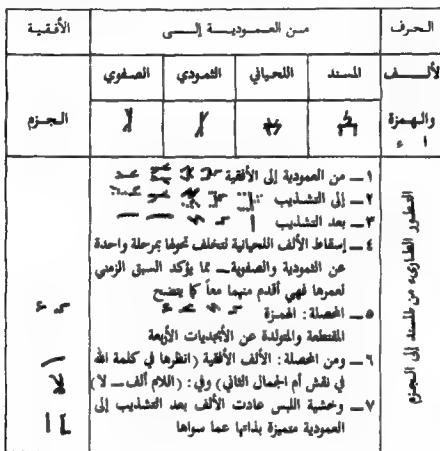 الحرف من العمودية إلى الأفقية
الألف المسند اللحياني الثمودي الصفوي
والهمزة الجزم
ا ء
التطور الطارىء من المسند إلى الجزم
١ــ من العمودية إلى الأفقية
٢ــ إلى التشذيب
٣ــ بعد التشذيب
٤ــ إسقاط الألف اللحيانية لتخلف تحولها بمرحلة واحدة
عن الثمودية والصفوية ــ مما يؤكد السبق الزمني
لعمرها فهي أقدم منهما معاً كما يتضح
٥ــ المحصلة : الهمزة
المقتطعة والمتولدة عن الأبجديات الأربعة
٦ــ ومن المحصلة : الألف الأفقية (انظرها في كلمة الله
في نقش أم الجمال الثاني) وفي : (اللام ألف ــ لا)
٧ــ وخشية اللبس عادت الألف بعد التشذيب إلى
العمودية متميزة بذاتها عما سواها